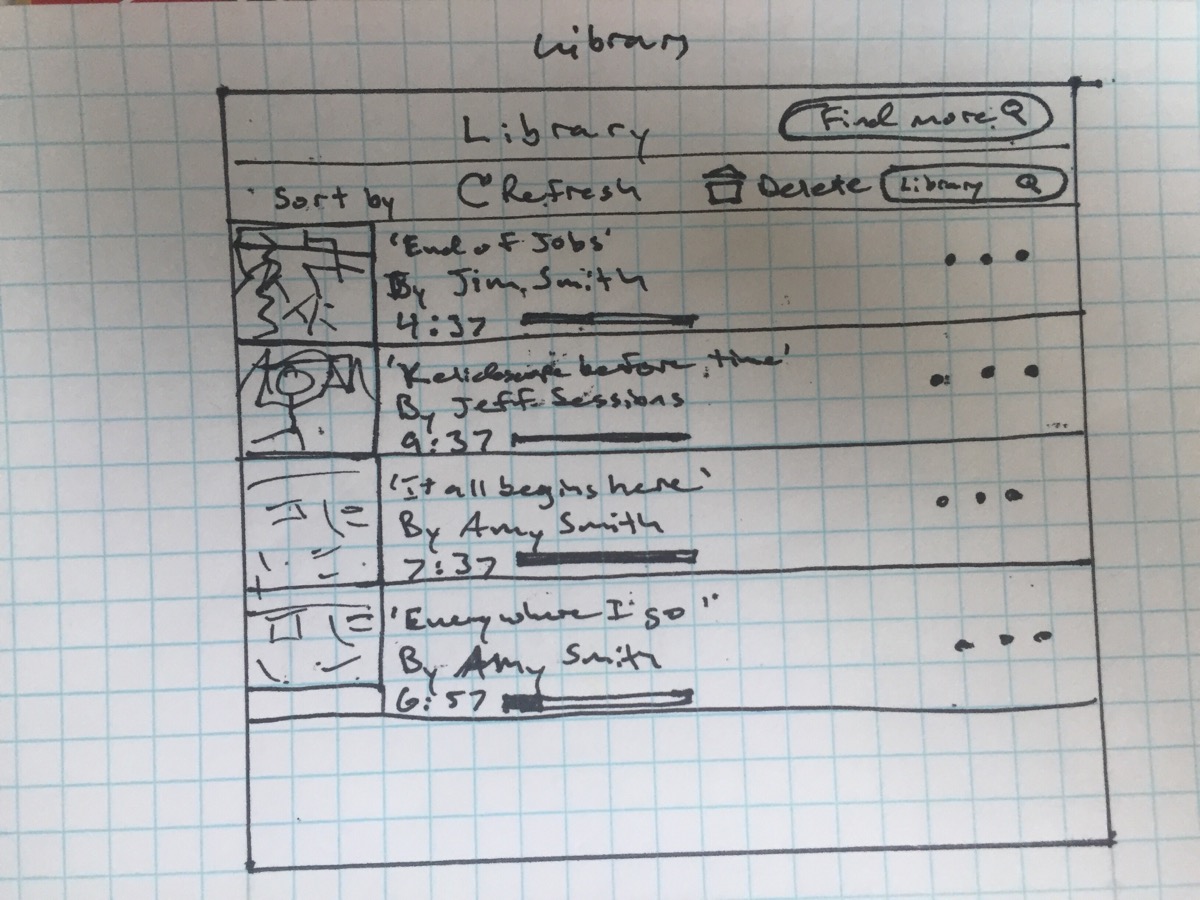 Library
Library
Find more
Sort by
Refresh
Delete
Library
'End of Jobs'
By Jim Smith
4:37
'Kelidoscope before time'
By Jeff Sessions
9:37
'It all begins here'
By Amy Smith
7:37
'Everywhere I go'
By Amy Smith
6:57